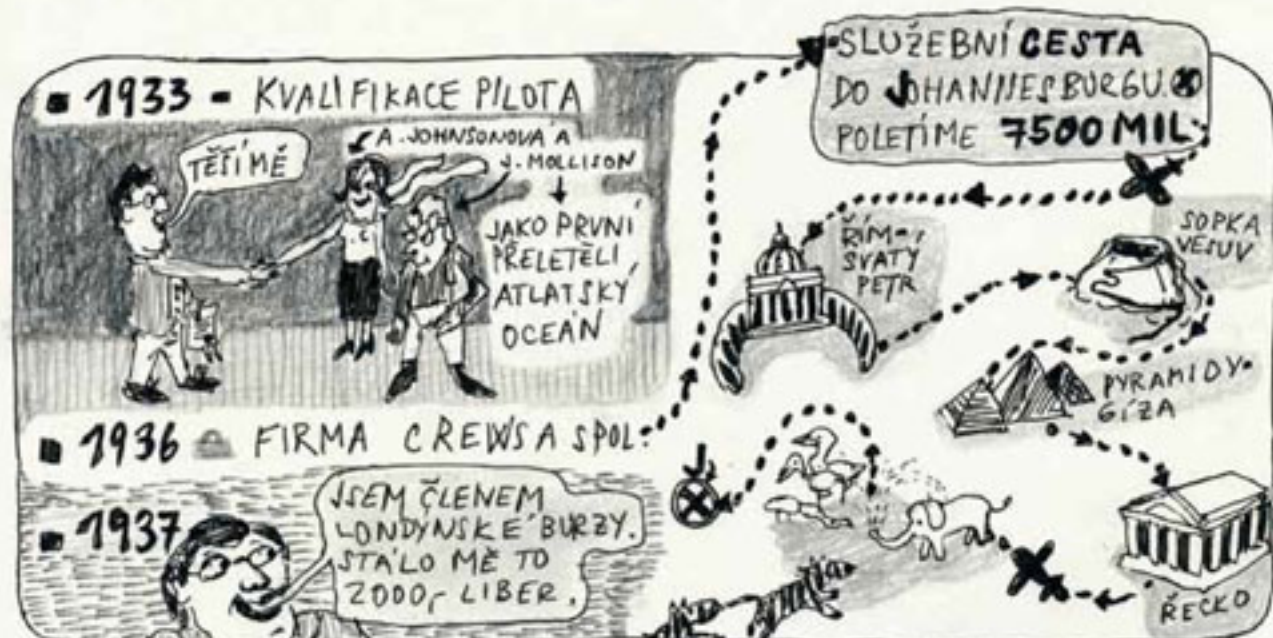 1933 - KVALIFIKACE PILOTA
TĚŠÍ MĚ
A. JOHNSONOVÁ A
J. MOLLISON
JAKO PRVNÍ
PŘELETĚLI
ATLATSKÝ
OCEÁN
1936 FIRMA CREWS A SPOL.
1937
JSEM ČLENEM
LONDÝNSKÉ BURZY.
STÁLO MĚ TO
2000,- LIBER.
SLUŽEBNÍ CESTA
DO JOHANNESBURGU
POLETÍME 7500 MIL
ŘÍM-
SVATÝ
PETR
SOPKA
VESUV
PYRAMIDY-
GÍZA
ŘECKO
J